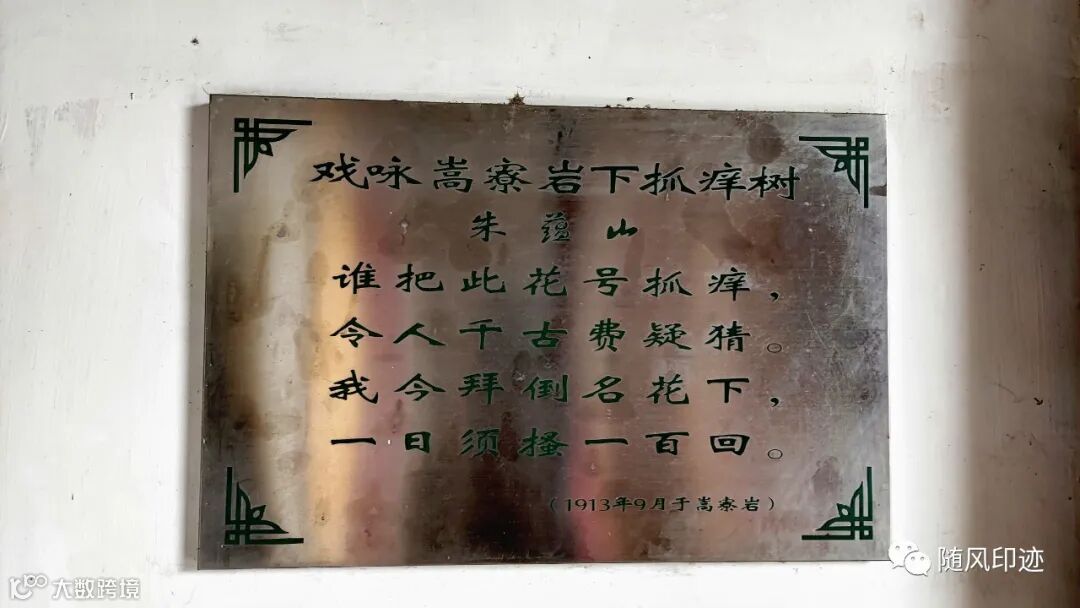 戏咏嵩寮岩下抓痒树
朱蕴山
谁把此花号抓痒，
令人千古费疑猜。
我今拜倒名花下，
一日须搔一百回。
（1913年9月于嵩寮岩）
大数跨境
随风印迹